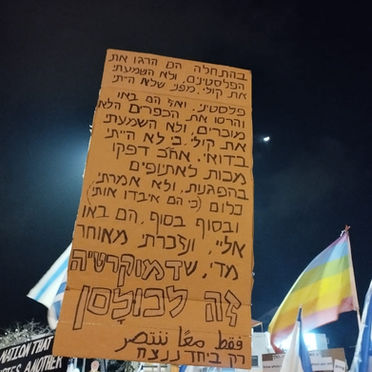 בהתחלה הם הרגו את
הפלסטינים, ולא השמעתי
את קולי. מפני שלא הייתי
פלסטיני. ואז הם באו
והרסו את הכפרים הלא
מוכרים, ולא השמעתי
את קולי, כי לא הייתי
בדואי. אח״כ דפקו
מכות לאתיופים
בהפגנות, ולא אמרתי
כלום (כי הם איבדו אותי)
ובסוף בסוף, הם באו
אליי, ונזכרתי מאוחר
מדי, שדמוקרטיה
זה לכולםן
فقط معًا ننتصر
רק ביחד ננצח
NATION THAT
ANOTHER